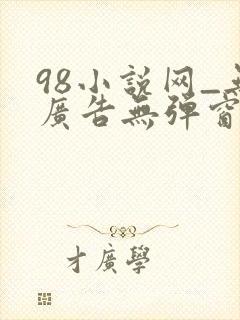 98小説网_無
廣告無彈窗
才廣學